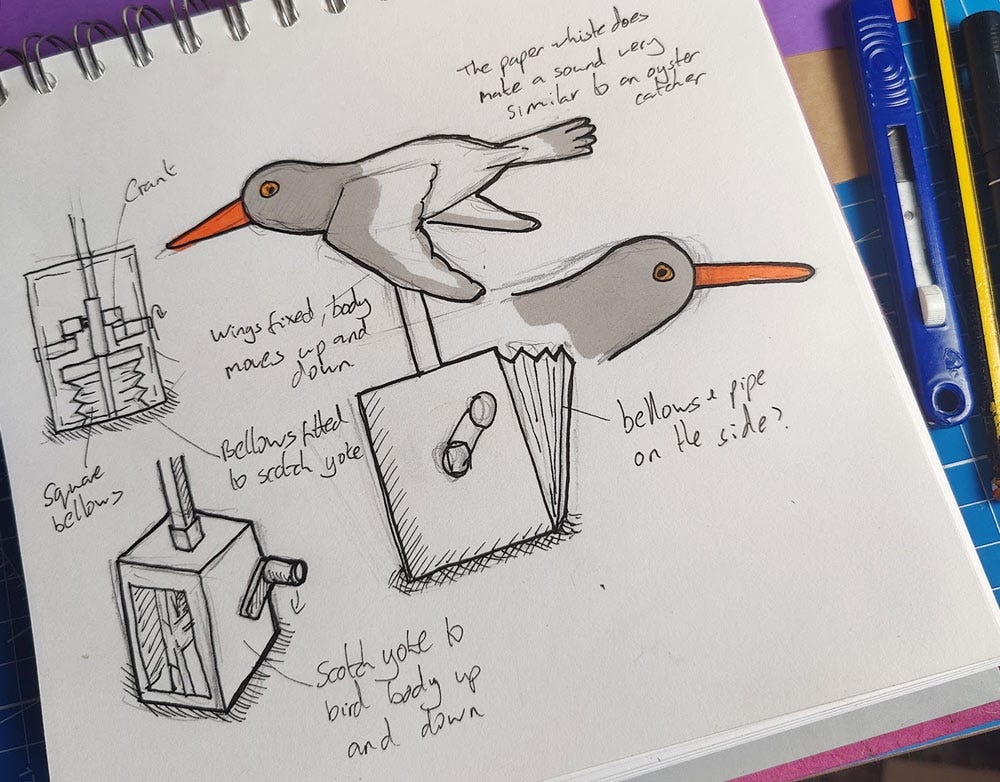 The paper whistle does
make a sound very
similar to an oyster
catcher
Crank
Wings fixed, body
moves up and
down
Bellows fitted
to scotch yoke
Square
bellows
bellows + pipe
on the side?
Scotch yoke to
bird body up
and down